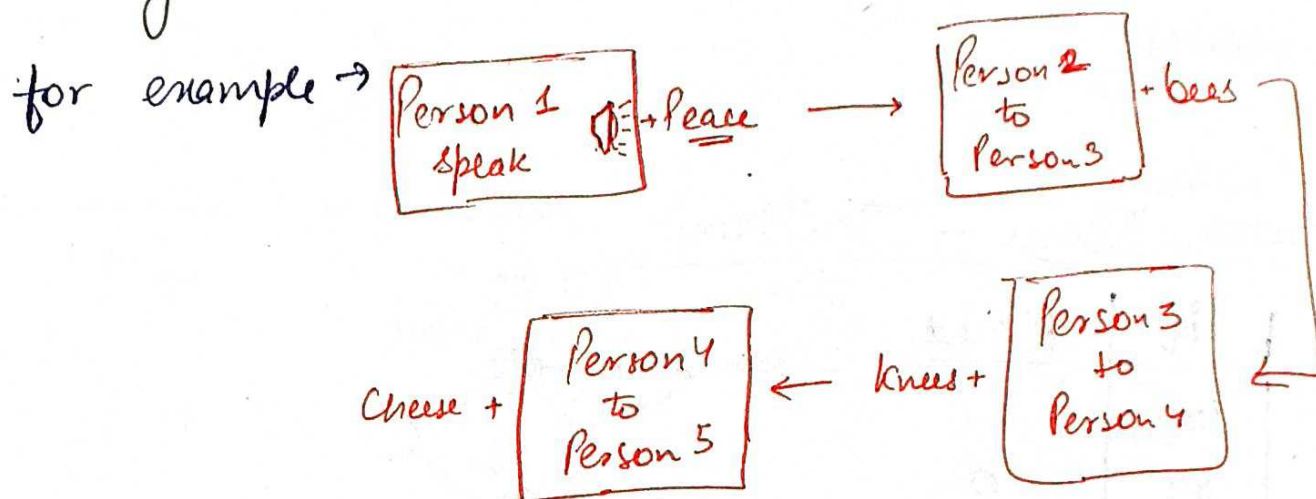 for example →
Person 1
speak
+ Peace →
Person 2
to
Person 3
+ bees
Person 3
to
Person 4
Knees +
←
Person 4
to
Person 5
Cheese +